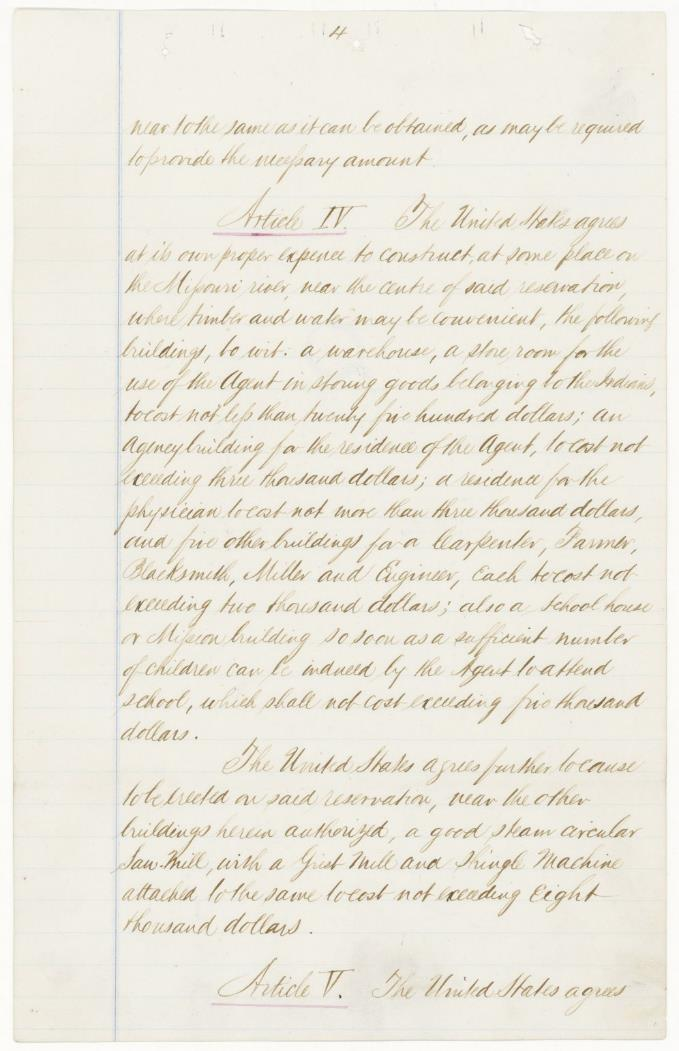 4
near to the same as it can be obtained, as may be required
to provide the necessary amount.
Article IV. The United States agrees
at its own proper expence to construct, at some place on
the Missouri river, near the centre of said reservation,
where timber and water may be convenient, the following
buildings, to wit: a warehouse, a store room for the
use of the Agent in storing goods belonging to the Indians,
to cost not less than twenty five hundred dollars; an
Agency building for the residence of the Agent, to cost not
exceeding three thousand dollars; a residence for the
physician to cost not more than three thousand dollars,
and five other buildings for a Carpenter, Farmer,
Blacksmith, Miller and Engineer, each to cost not
exceeding two thousand dollars; also a school house
or Mission building so soon as a sufficient number
of children can be induced by the Agent to attend
school, which shall not cost exceeding five thousand
dollars.
The United States agrees further to cause
to be erected on said reservation, near the other
buildings herein authorized, a good steam circular
Saw Mill, with a Grist Mill and Shingle Machine
attached to the same to cost not exceeding Eight
thousand dollars.
Article V. The United States agrees